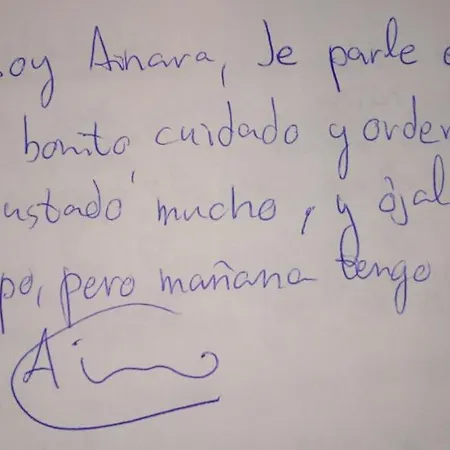 oy Ainara, Je parle
bonito, cuidado y orden
ustado mucho, y ojal
po, pero mañana tengo
Ai